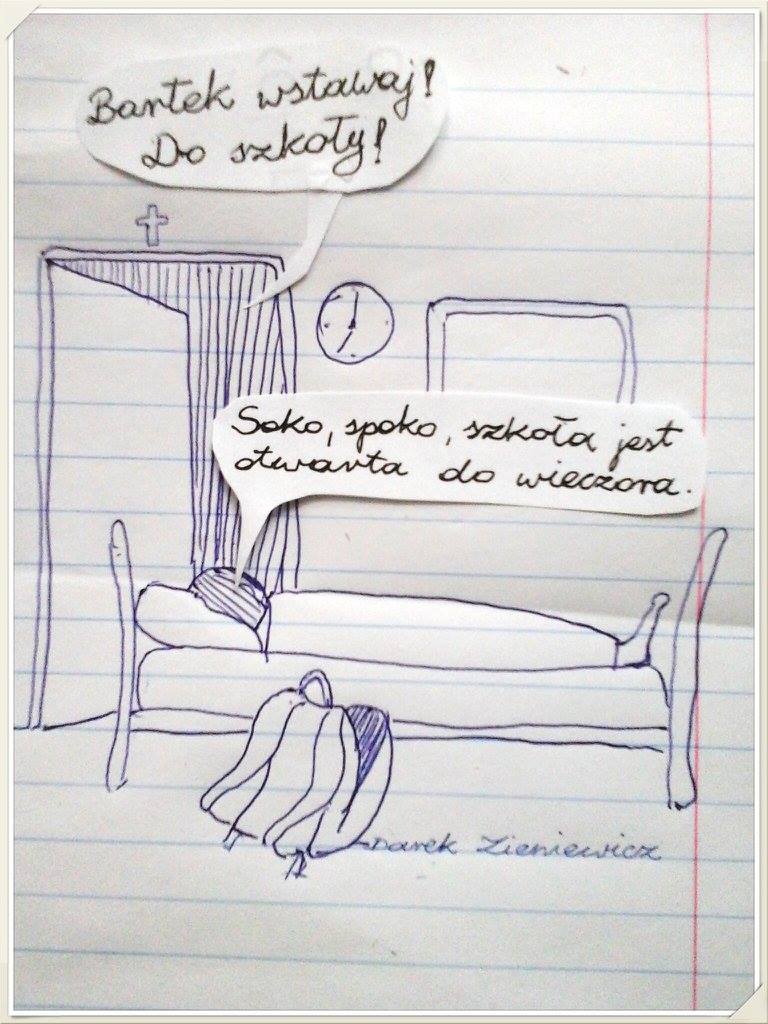 Bartek wstawaj!
Do szkoły!
Soko, spoko, szkoła jest
otwarta do wieczora.
Darek Zieniewicz